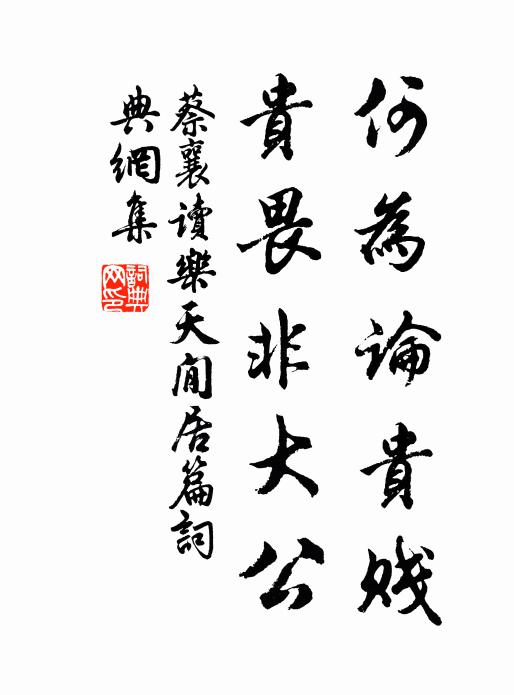 何為論貴賤
貴畏非大公
蔡襄讀樂天閒居篇詞
典網集
詞典
网印